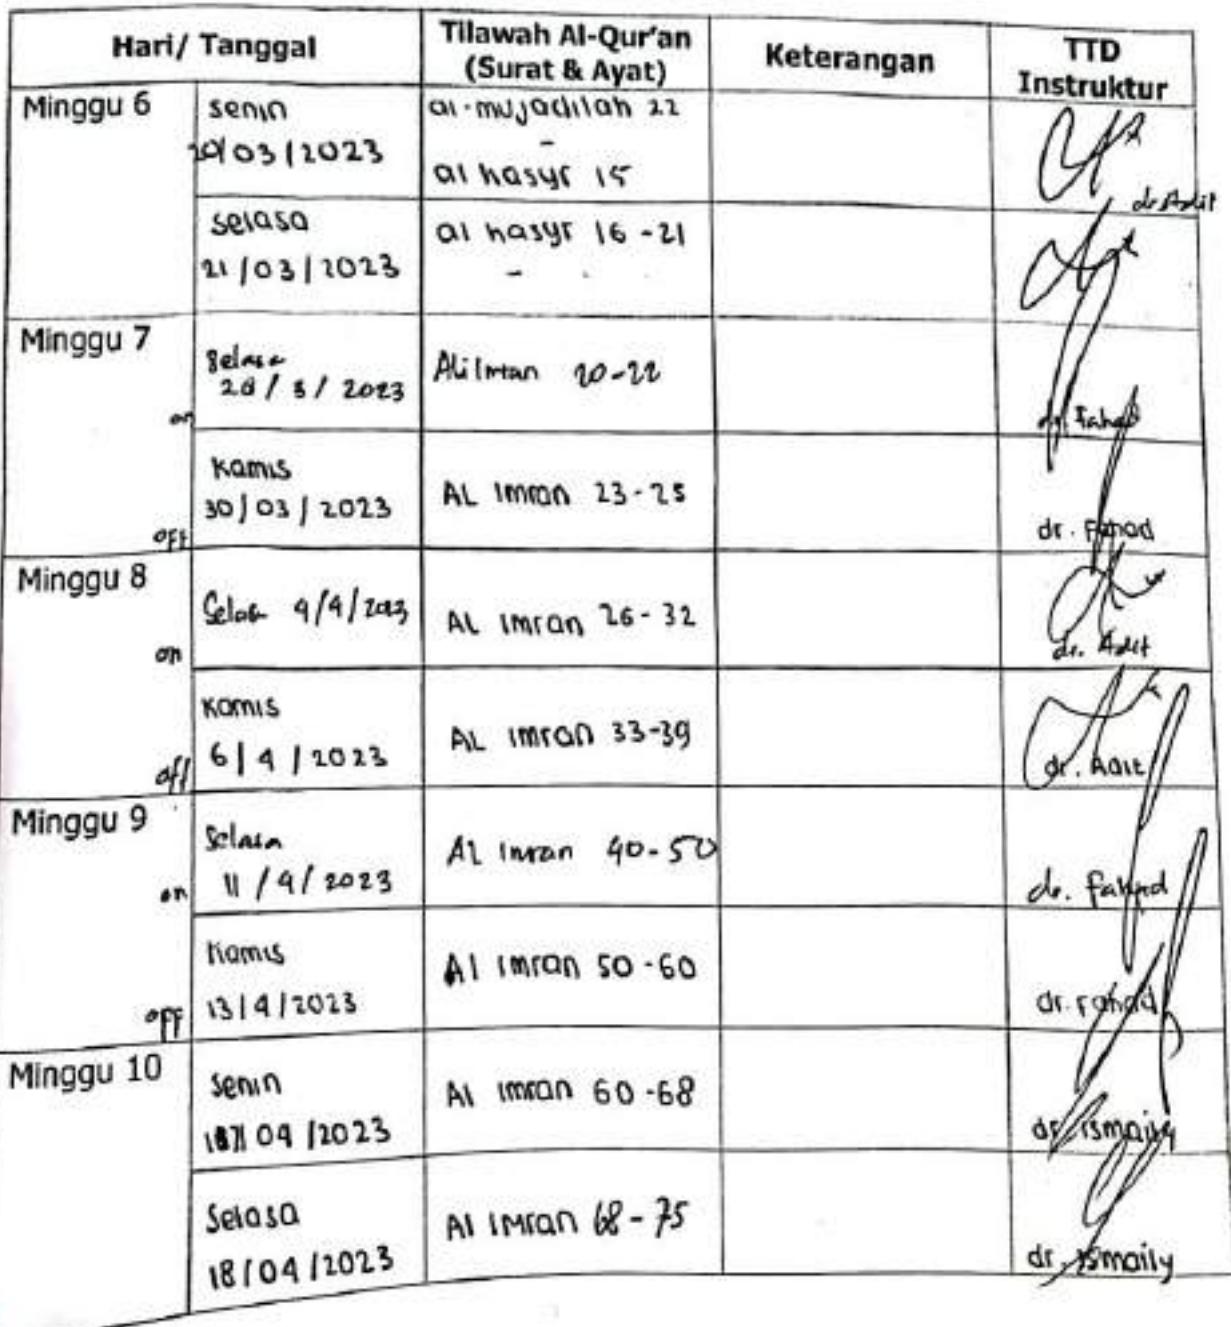 Hari/ Tanggal
Tilawah Al-Qur'an
(Surat & Ayat)
Keterangan
TTD
Instruktur
Minggu 6
senin
20/03/2023
al-mujadilah 22
-
al hasyr 15
dr Adit
selasa
21/03/2023
al hasyr 16-21
-
Minggu 7
on
Selasa
28/3/2023
Ali Imran 20-22
dr. Fahad
off
Kamis
30/03/2023
AL Imran 23-25
dr. Fahad
Minggu 8
on
Selasa 4/4/2023
AL Imran 26-32
dr. Adit
off
Kamis
6/4/2023
AL Imran 33-39
dr. Adit
Minggu 9
on
Selasa
11/4/2023
Al Imran 40-50
dr. Fahad
off
Kamis
13/4/2023
Al Imran 50-60
dr. Fahad
Minggu 10
Senin
04/2023
Al Imran 60-68
dr. Ismaily
Selasa
18/04/2023
Al Imran 68-75
dr. Ismaily